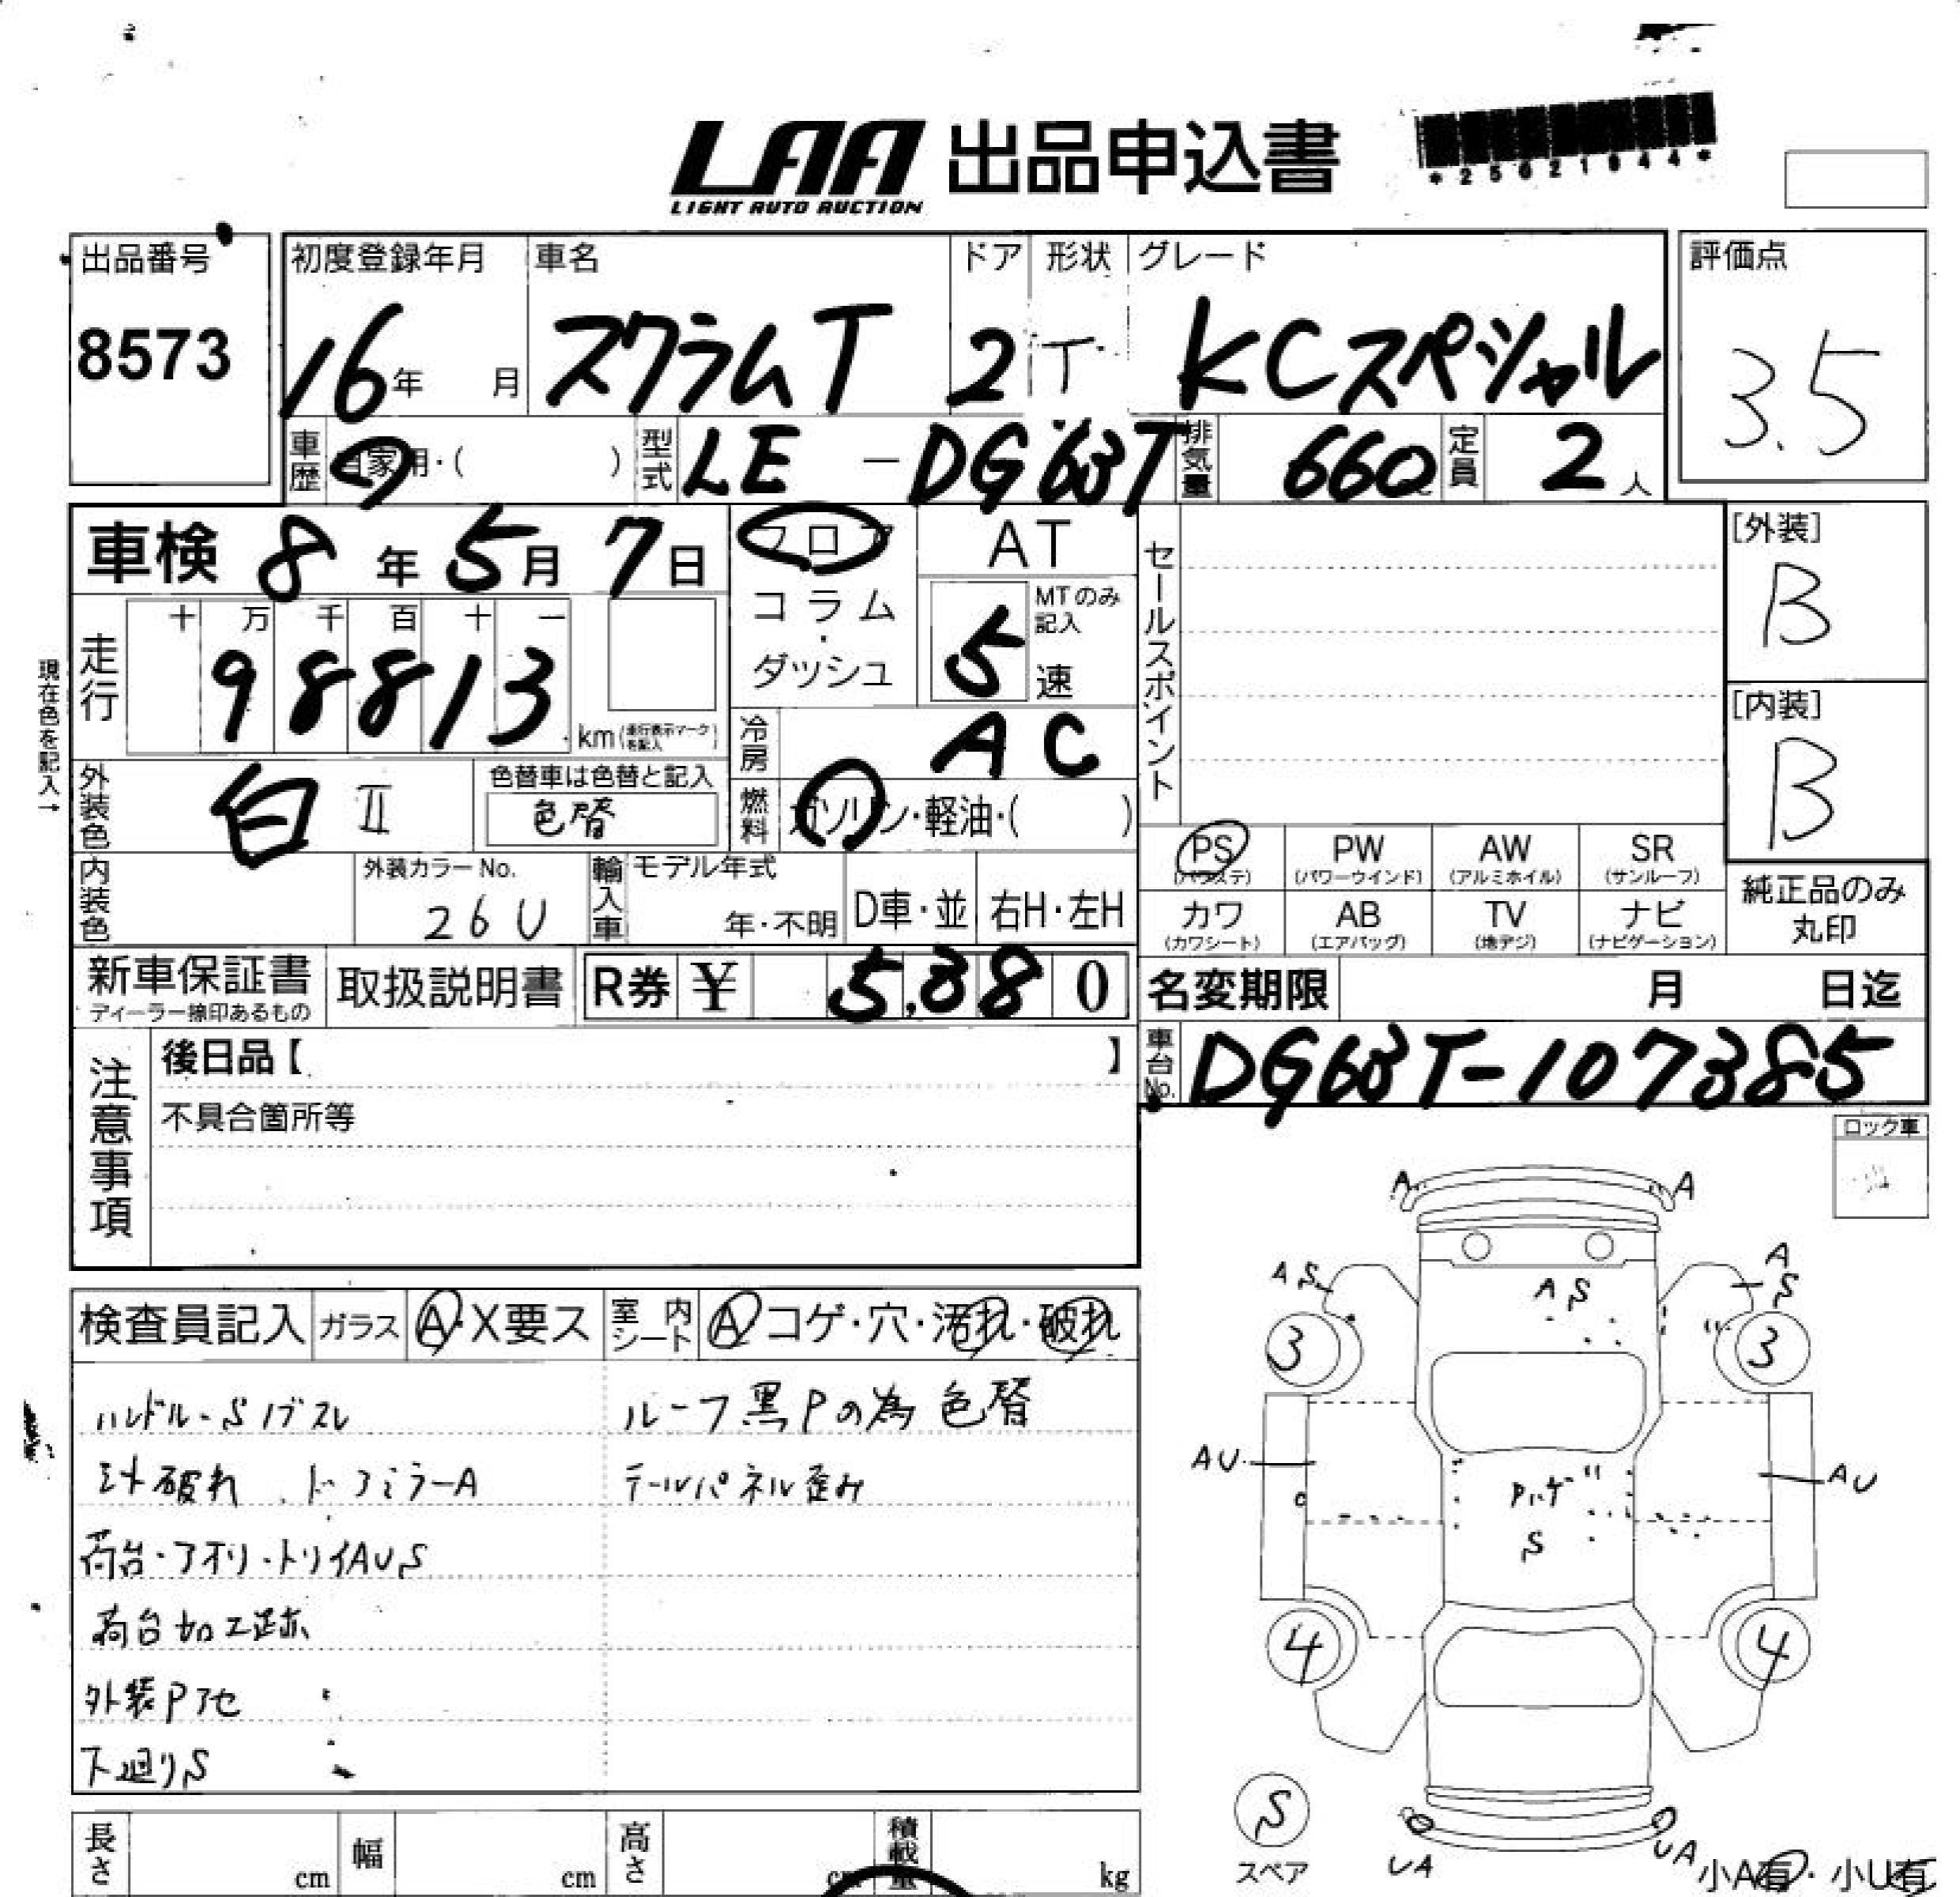 LAA 出品申込書
LIGHT AUTO AUCTION
*25021944*
出品番号
8573
初度登録年月 車名 ドア 形状 グレード
16年 月 スクラムT 2 T KCスペシャル
評価点
3.5
車歴 自家用・( ) 型式 LE - DG63T 排気量 660 定員 2人
車検 8年 5月 7日
フロア
コラム
・
ダッシュ
AT
5 MTのみ記入
速
セールスポイント
[外装]
B
[内装]
B
現在色を記入→
走行 十 万 千 百 十 一
98813 km(走行表示マークを記入)
冷房 AC
外装色 白 II 色替車は色替と記入
色替
燃料 ガソリン・軽油・( )
内装色 外装カラーNo.
26U
輸入車 モデル年式
年・不明 D車・並 右H・左H
PS (パワステ) PW (パワーウインド) AW (アルミホイル) SR (サンルーフ)
カワ (カワシート) AB (エアバッグ) TV (地デジ) ナビ (ナビゲーション)
純正品のみ
丸印
新車保証書 取扱説明書 R券 ¥ 5,380
ディーラー捺印あるもの
名変期限 月 日迄
車台No. DG63T-107385
注意事項
後日品【 】
不具合箇所等
ロック車
検査員記入 ガラス A・X要ス 室内シート A コゲ・穴・汚れ・破れ
ハンドル・Sノブスレ ルーフ黒Pの為 色替
ミト破れ ドアミラーA テールパネル歪み
荷台・アオリ・トリイAUS
荷台加工跡
外装Pアセ
下廻りS
A A
AS AS A
S
3 3
AU AU
Pハゲ
S
4 4
S
スペア
UA UA
小A有・小U有
長さ cm 幅 cm 高さ cm 積載量 kg